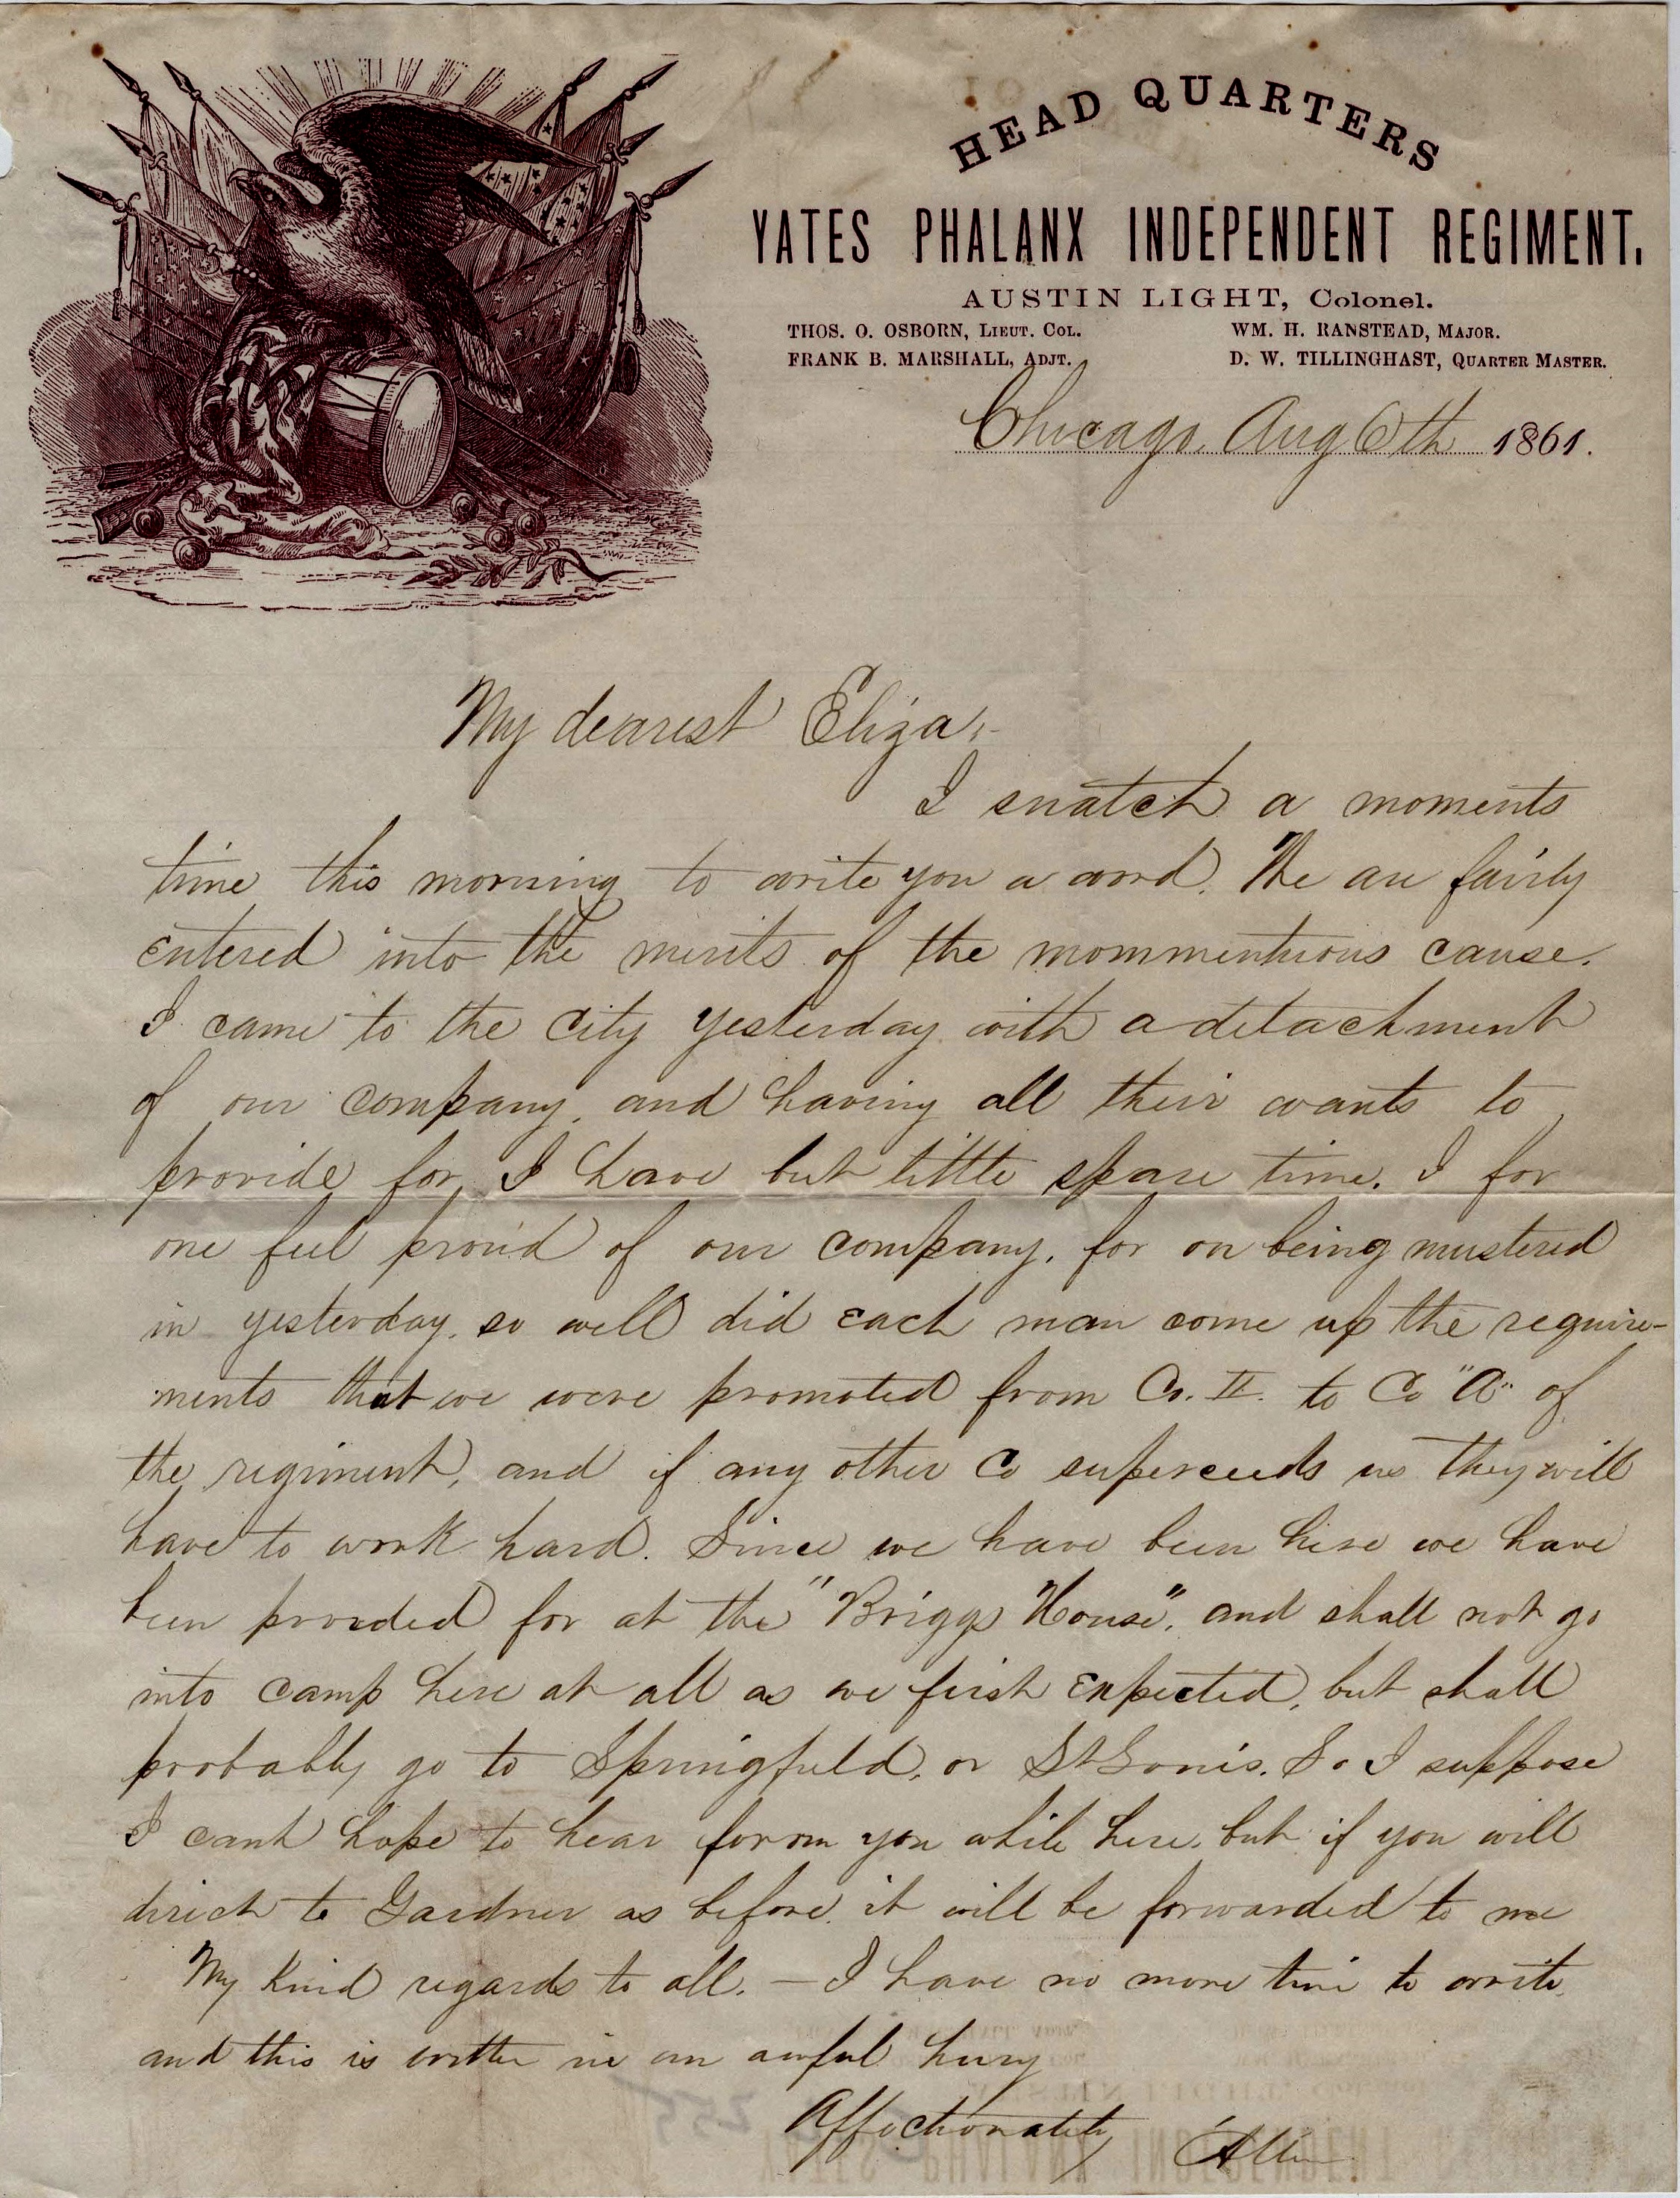 HEAD QUARTERS
YATES PHALANX INDEPENDENT REGIMENT.
AUSTIN LIGHT, Colonel.
THOS. O. OSBORN, LIEUT. COL. WM. H. RANSTEAD, MAJOR.
FRANK B. MARSHALL, ADJT. D. W. TILLINGHAST, QUARTER MASTER.
Chicago, Aug 6th 1861.
My dearest Eliza,-
I snatch a moments
time this morning to write you a word. We are fairly
entered into the merits of the mommentuous cause.
I came to the city yesterday with a detachment
of our company, and having all their wants to
provide for, I have but little spare time. I for
one feel proud of our company, for on being mustered
in yesterday, so well did each man come up the require-
ments that we were promoted from Co. II. to Co "A" of
the regiment, and if any other Co superceeds us they will
have to work hard. Since we have been here we have
been provided for at the "Briggs House", and shall not go
into camp here at all as we first expected, but shall
probably go to Springfield, or St Louis. So I suppose
I cant hope to hear forom you while here, but if you will
direct to Gardner as before, it will be forwarded to me
My kind regards to all. — I have no more time to write,
and this is written in an awful hurry
Affectionately Allen
255